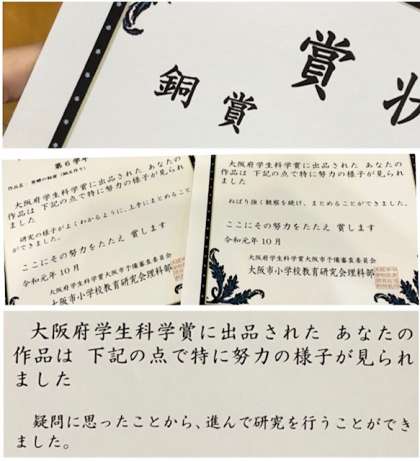 賞状
銅賞
第6学年
大阪府学生科学賞に出品された あなたの
作品は 下記の点で特に努力の様子が見られ
ました
研究の様子がよくわかるように、上手にまとめること
ができました。
ここにその努力をたたえ 賞します
令和元年10月
大阪府学生科学賞大阪市予備審査委員会
大阪市小学校教育研究会理科部
大阪府学生科学賞に出品された あなたの
作品は 下記の点で特に努力の様子が見られ
ました
ねばり強く観察を続け、まとめることができました。
ここにその努力をたたえ 賞します
令和元年10月
大阪府学生科学賞大阪市予備審査委員会
大阪市小学校教育研究会理科部
大阪府学生科学賞に出品された あなたの
作品は 下記の点で特に努力の様子が見られ
ました
疑問に思ったことから、進んで研究を行うことができ
ました。